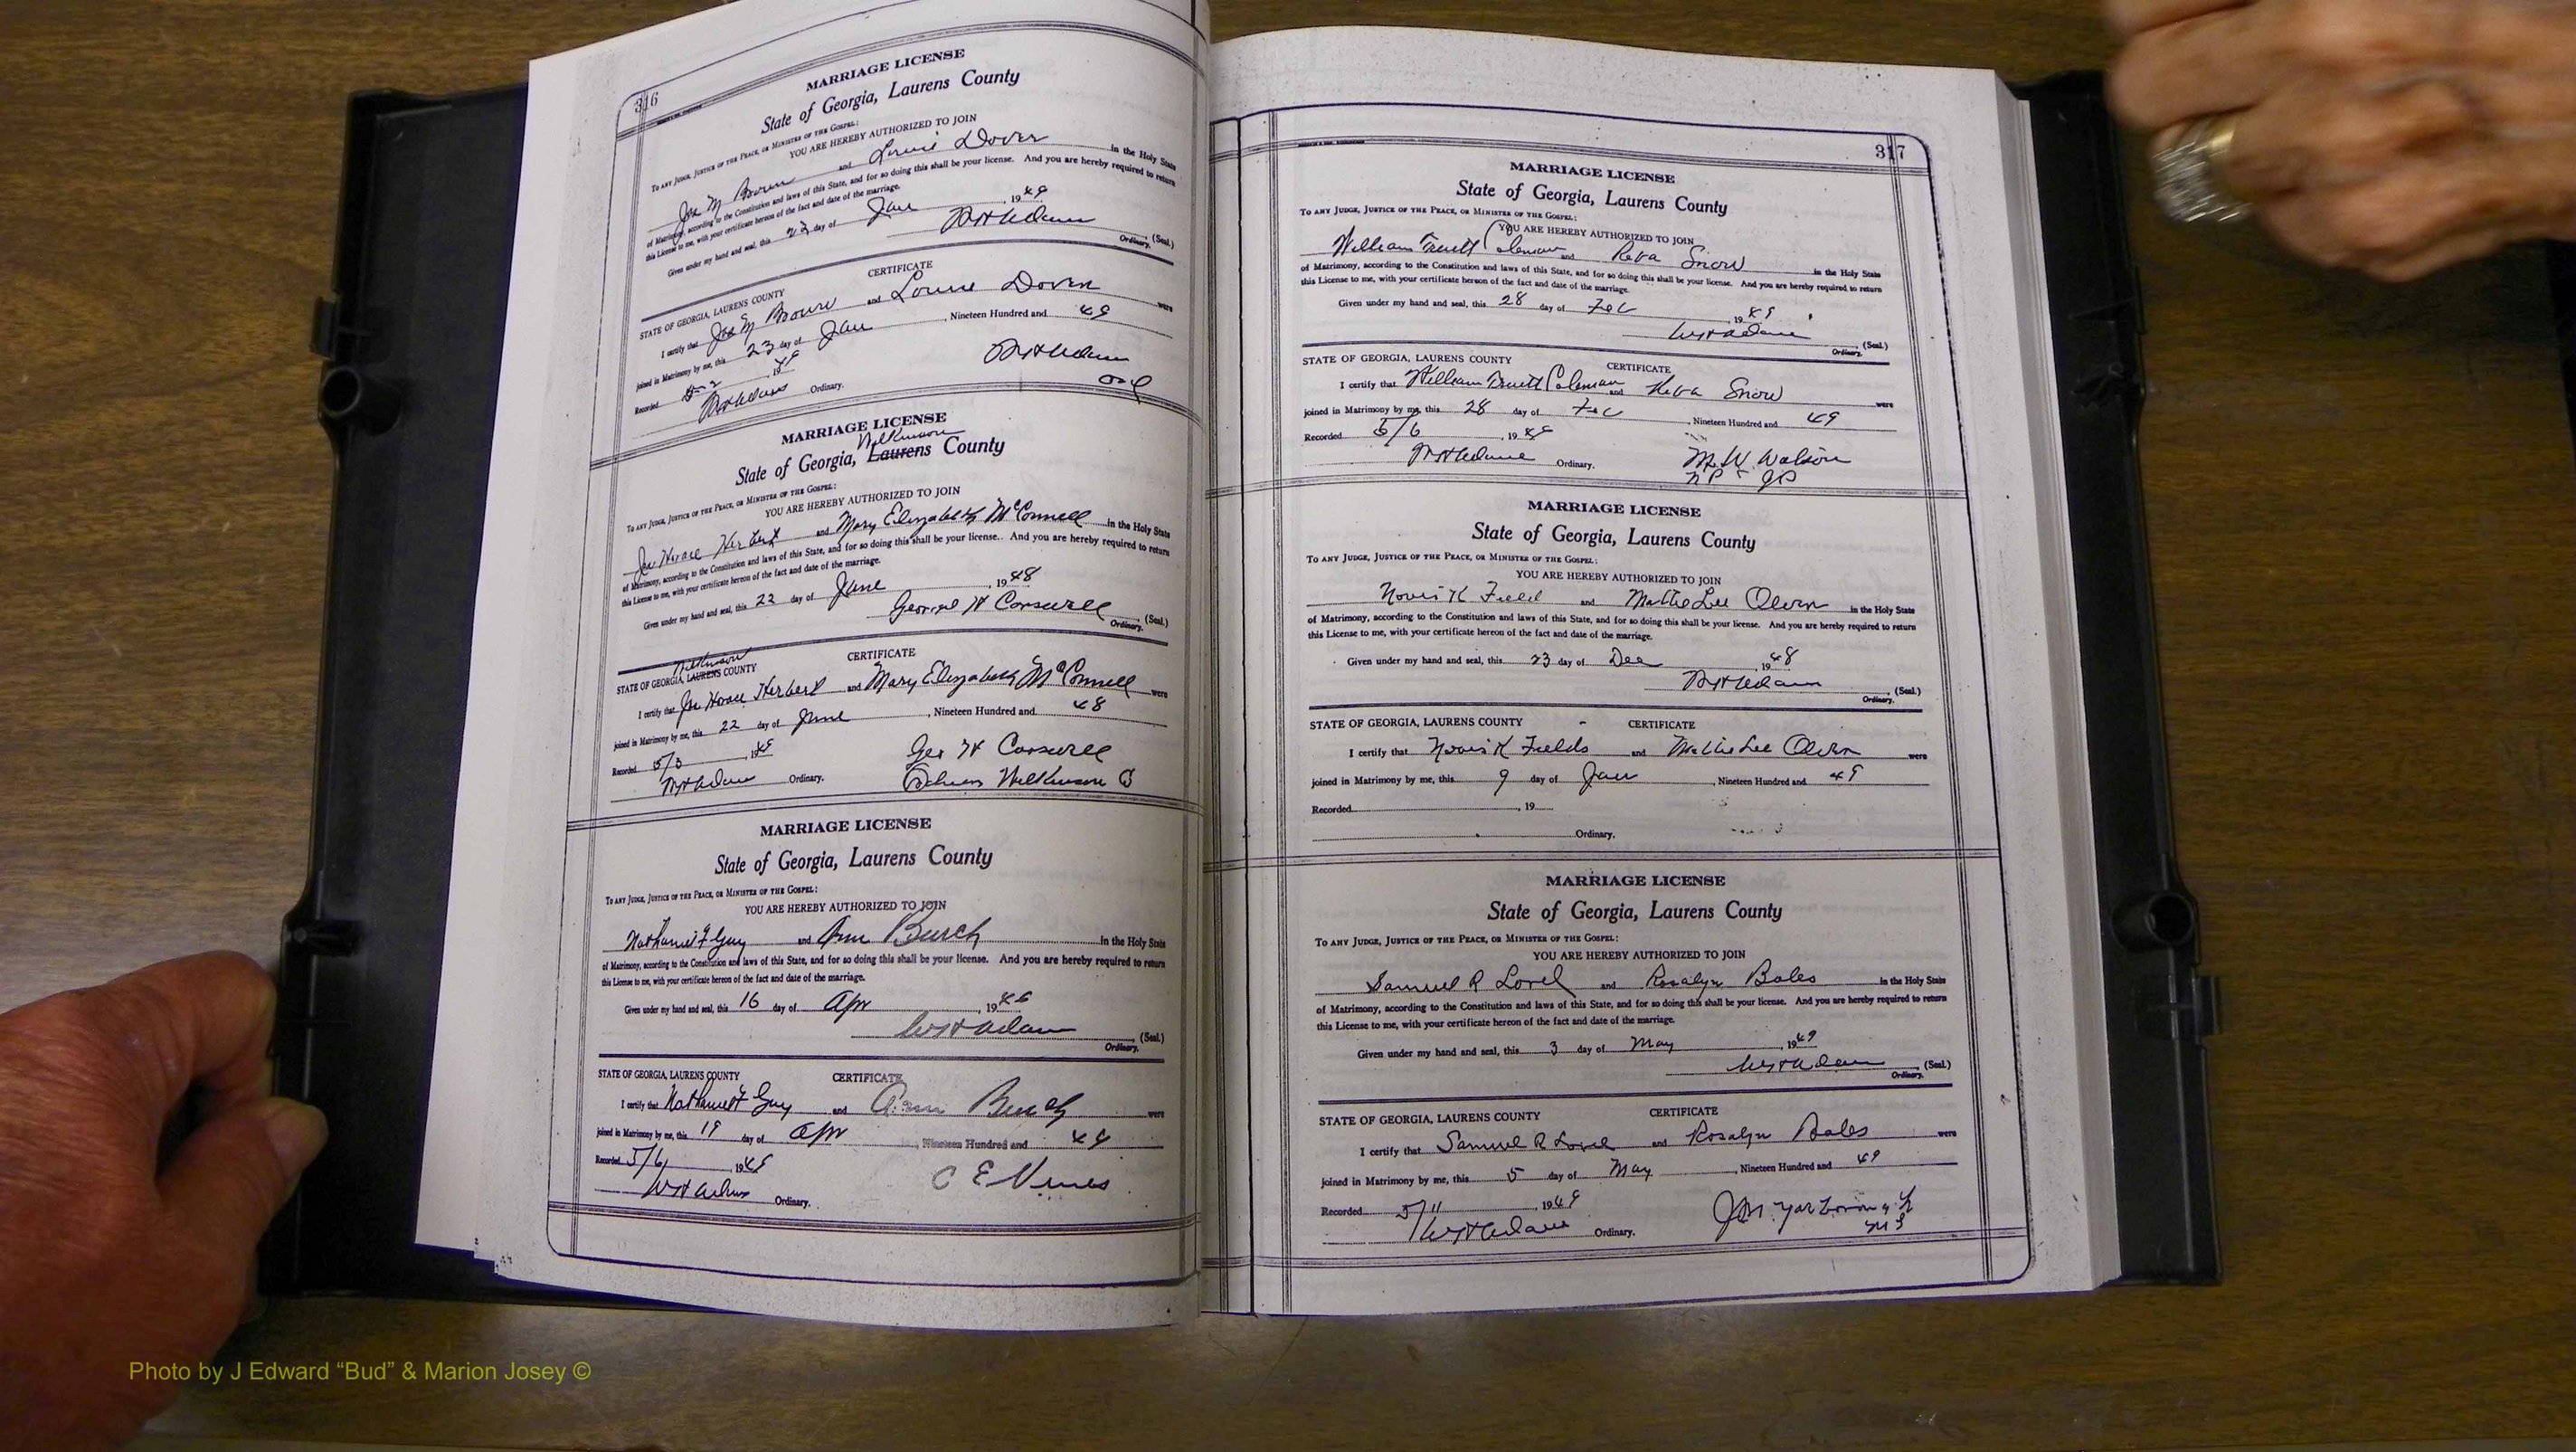 316
MARRIAGE LICENSE
State of Georgia, Laurens County
TO ANY JUDGE, JUSTICE OF THE PEACE, OR MINISTER OF THE GOSPEL:
YOU ARE HEREBY AUTHORIZED TO JOIN
Joe M and Dover in the Holy State
of Matrimony, according to the Constitution and laws of this State, and for so doing this shall be your license. And you are hereby required to return
this License to me, with your certificate hereon of the fact and date of the marriage.
Given under my hand and seal, this 23 day of Jan , 1949
(Seal.)
Ordinary.
CERTIFICATE
STATE OF GEORGIA, LAURENS COUNTY
I certify that Joe M and Dover were
joined in Matrimony by me, this 23 day of Jan , Nineteen Hundred and 49
Recorded , 1949
Ordinary.
Ord
MARRIAGE LICENSE
Wilkinson
State of Georgia, Laurens County
TO ANY JUDGE, JUSTICE OF THE PEACE, OR MINISTER OF THE GOSPEL:
YOU ARE HEREBY AUTHORIZED TO JOIN
Joe Horace Herbert and Mary Elizabeth McConnell in the Holy State
of Matrimony, according to the Constitution and laws of this State, and for so doing this shall be your license. And you are hereby required to return
this License to me, with your certificate hereon of the fact and date of the marriage.
Given under my hand and seal, this 22 day of June , 1948
George H Carswell (Seal.)
Ordinary.
Wilkinson
STATE OF GEORGIA, LAURENS COUNTY CERTIFICATE
I certify that Joe Horace Herbert and Mary Elizabeth McConnell were
joined in Matrimony by me, this 22 day of June , Nineteen Hundred and 48
Recorded 5/3 , 1949 Geo H Carswell
Ordinary. Wilkinson
MARRIAGE LICENSE
State of Georgia, Laurens County
TO ANY JUDGE, JUSTICE OF THE PEACE, OR MINISTER OF THE GOSPEL:
YOU ARE HEREBY AUTHORIZED TO JOIN
Nathaniel F Guy and Ann Burch in the Holy State
of Matrimony, according to the Constitution and laws of this State, and for so doing this shall be your license. And you are hereby required to return
this License to me, with your certificate hereon of the fact and date of the marriage.
Given under my hand and seal, this 16 day of Apr , 19
WH Adams (Seal.)
Ordinary.
STATE OF GEORGIA, LAURENS COUNTY CERTIFICATE
I certify that Guy and Ann Burch were
joined in Matrimony by me, this 19 day of Apr , Nineteen Hundred and 49
Recorded 5/6 , 1949
WH Adams Ordinary. C E Vines
317
MARRIAGE LICENSE
State of Georgia, Laurens County
TO ANY JUDGE, JUSTICE OF THE PEACE, OR MINISTER OF THE GOSPEL:
YOU ARE HEREBY AUTHORIZED TO JOIN
William Truett Coleman and Reva Snow in the Holy State
of Matrimony, according to the Constitution and laws of this State, and for so doing this shall be your license. And you are hereby required to return
this License to me, with your certificate hereon of the fact and date of the marriage.
Given under my hand and seal, this 28 day of Feb , 1949
WH Adams (Seal.)
Ordinary.
STATE OF GEORGIA, LAURENS COUNTY CERTIFICATE
I certify that William Truett Coleman and Reva Snow were
joined in Matrimony by me, this 28 day of Feb , Nineteen Hundred and 49
Recorded 5/6 , 1949
WH Adams Ordinary. M. W. Watson
NP & JP
MARRIAGE LICENSE
State of Georgia, Laurens County
TO ANY JUDGE, JUSTICE OF THE PEACE, OR MINISTER OF THE GOSPEL:
YOU ARE HEREBY AUTHORIZED TO JOIN
K Field and Mattie Lee in the Holy State
of Matrimony, according to the Constitution and laws of this State, and for so doing this shall be your license. And you are hereby required to return
this License to me, with your certificate hereon of the fact and date of the marriage.
Given under my hand and seal, this 23 day of Dec , 1948
WH Adams (Seal.)
Ordinary.
STATE OF GEORGIA, LAURENS COUNTY CERTIFICATE
I certify that K Fields and Mattie Lee were
joined in Matrimony by me, this 9 day of Jan , Nineteen Hundred and 49
Recorded , 19
Ordinary.
MARRIAGE LICENSE
State of Georgia, Laurens County
TO ANY JUDGE, JUSTICE OF THE PEACE, OR MINISTER OF THE GOSPEL:
YOU ARE HEREBY AUTHORIZED TO JOIN
Samuel R Lovel and Rosalyn Bales in the Holy State
of Matrimony, according to the Constitution and laws of this State, and for so doing this shall be your license. And you are hereby required to return
this License to me, with your certificate hereon of the fact and date of the marriage.
Given under my hand and seal, this 3 day of May , 1949
WH Adams (Seal.)
Ordinary.
STATE OF GEORGIA, LAURENS COUNTY CERTIFICATE
I certify that Samuel R Lovel and Rosalyn Bales were
joined in Matrimony by me, this 5 day of May , Nineteen Hundred and 49
Recorded 5/11 , 1949 Yarborough
WH Adams Ordinary. MG
Photo by J Edward “Bud” & Marion Josey ©